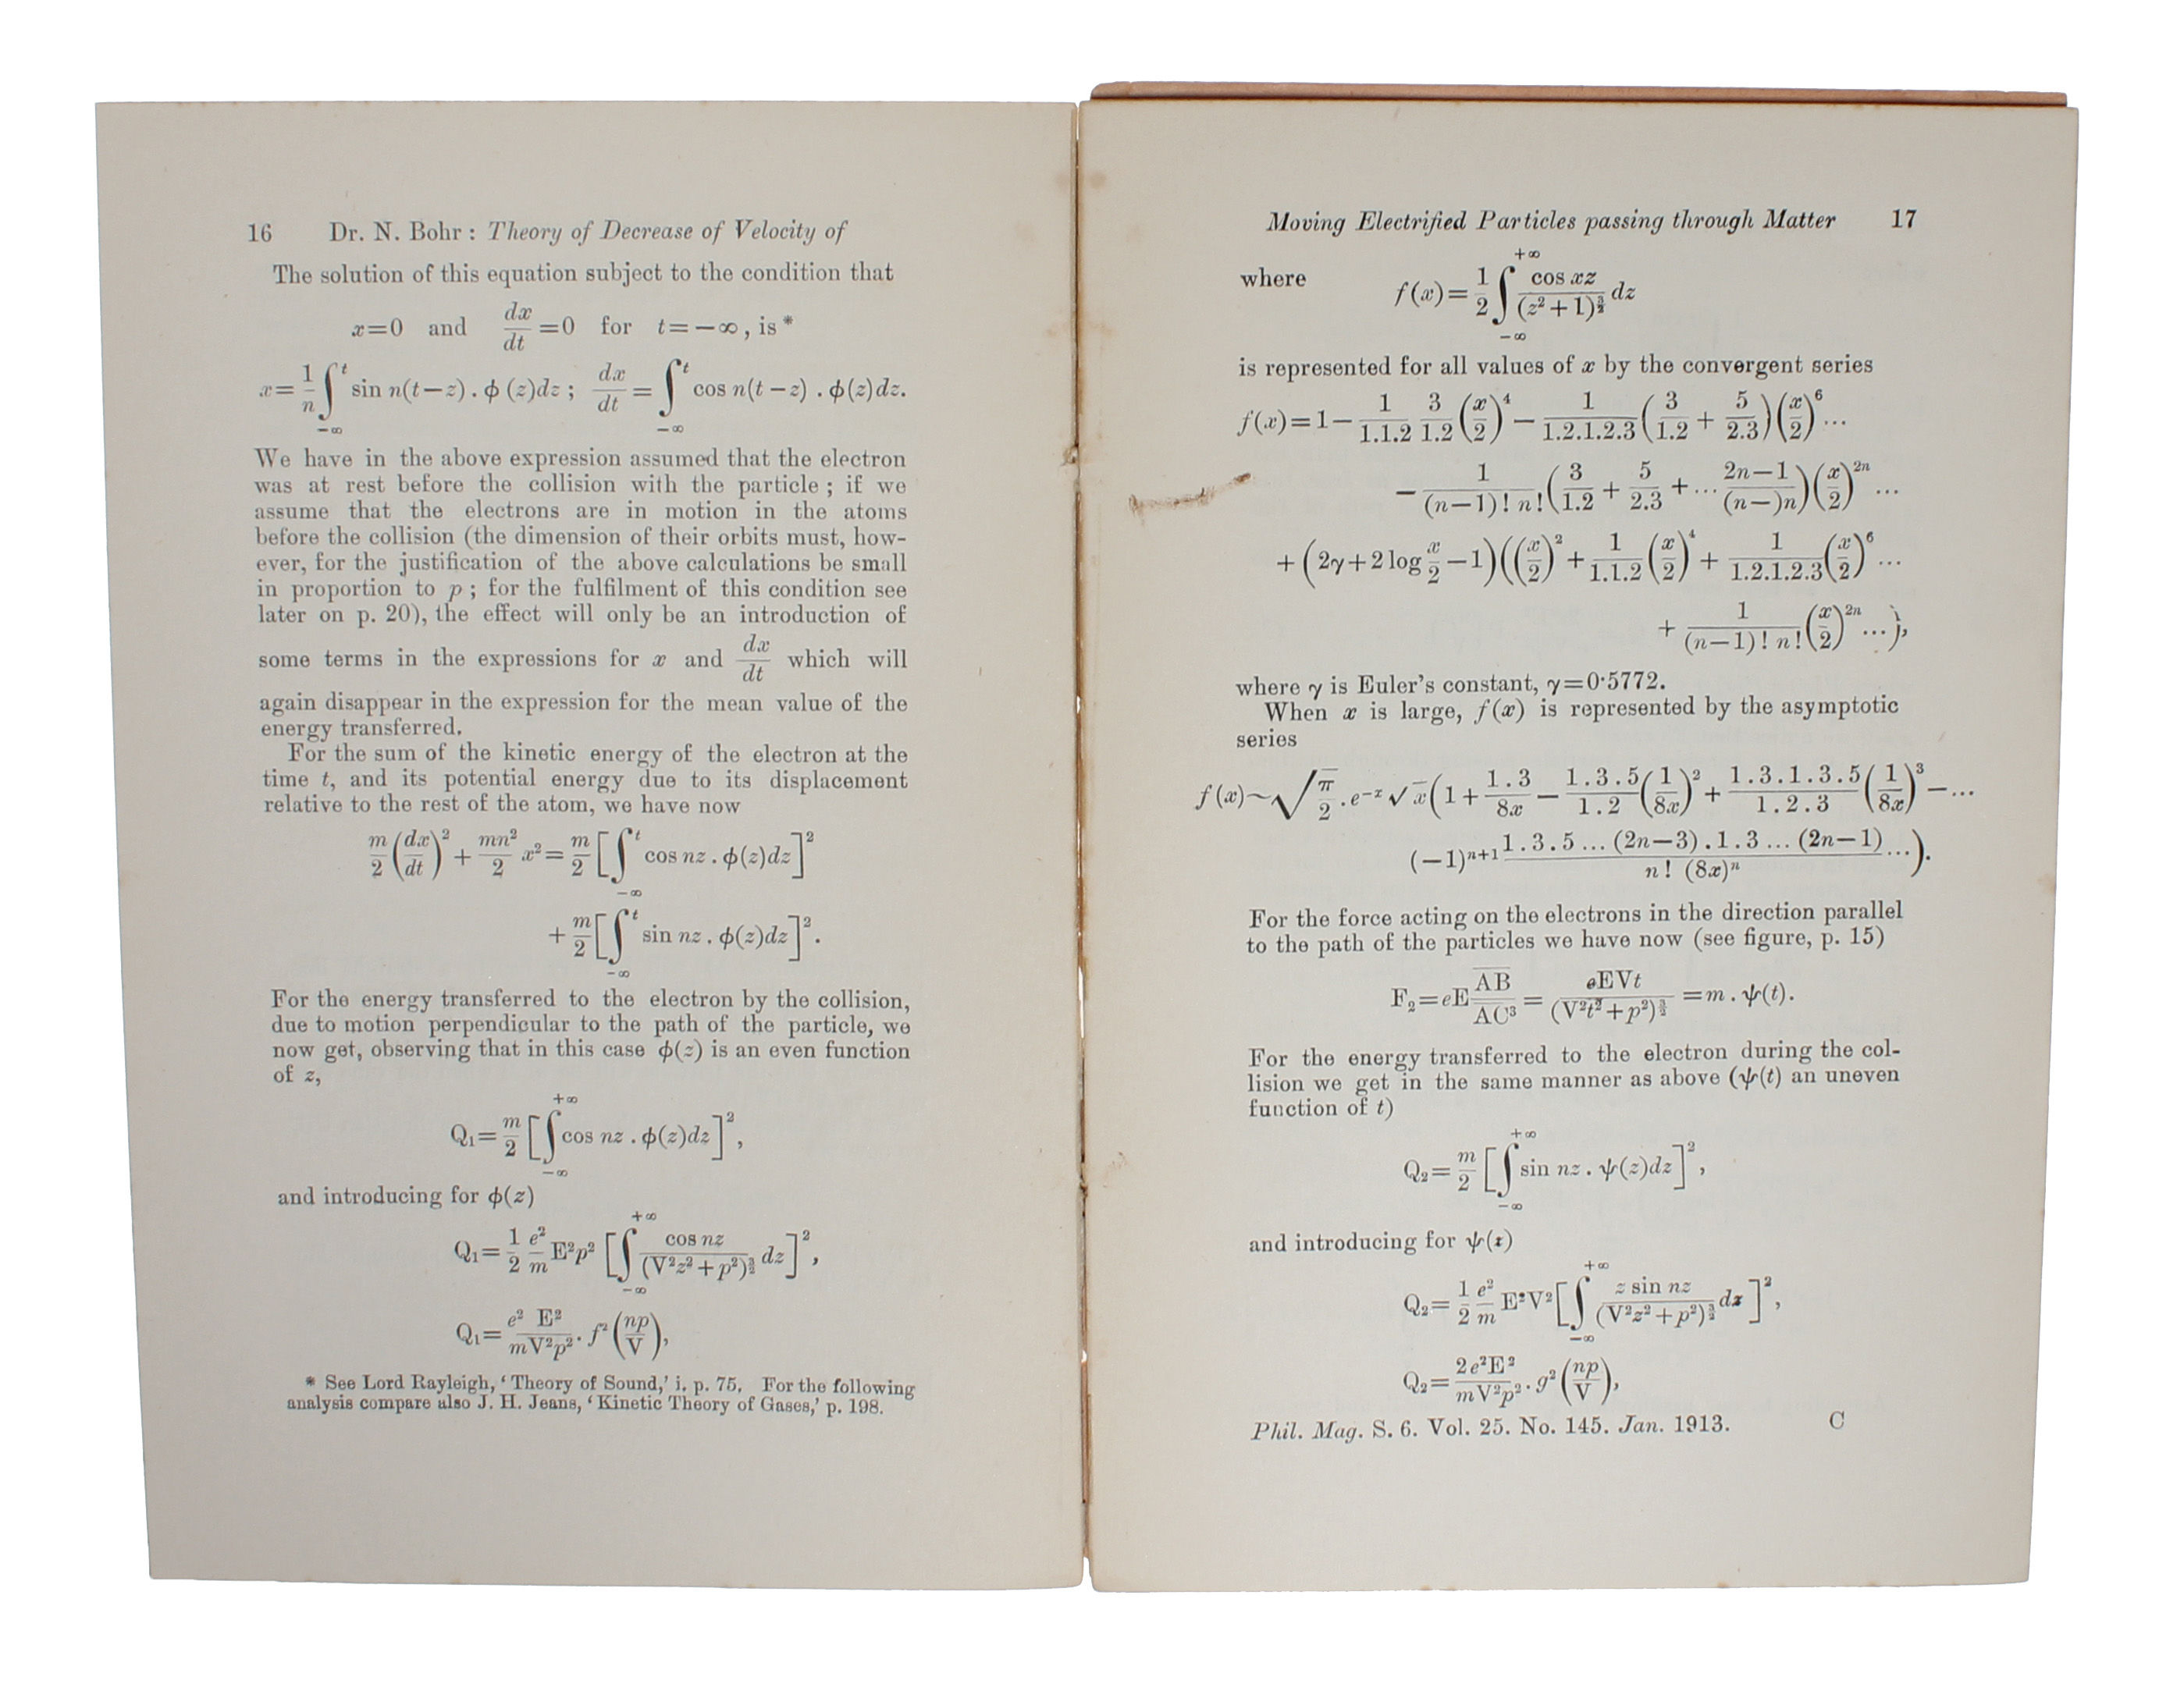 16 Dr. N. Bohr : Theory of Decrease of Velocity of
The solution of this equation subject to the condition that
x=0 and dx/dt =0 for t=−∞, is *
x= 1/n ∫_{−∞}^{t} sin n(t−z) . ϕ (z)dz ; dx/dt = ∫_{−∞}^{t} cos n(t−z) . ϕ(z)dz.
We have in the above expression assumed that the electron
was at rest before the collision with the particle ; if we
assume that the electrons are in motion in the atoms
before the collision (the dimension of their orbits must, how-
ever, for the justification of the above calculations be small
in proportion to p ; for the fulfilment of this condition see
later on p. 20), the effect will only be an introduction of
some terms in the expressions for x and dx/dt which will
again disappear in the expression for the mean value of the
energy transferred.
For the sum of the kinetic energy of the electron at the
time t, and its potential energy due to its displacement
relative to the rest of the atom, we have now
m/2 (dx/dt)² + mn²/2 x² = m/2 [∫_{−∞}^{t} cos nz . ϕ(z)dz]²
+ m/2 [∫_{−∞}^{t} sin nz . ϕ(z)dz]².
For the energy transferred to the electron by the collision,
due to motion perpendicular to the path of the particle, we
now get, observing that in this case ϕ(z) is an even function
of z,
Q₁= m/2 [∫_{−∞}^{+∞} cos nz . ϕ(z)dz]²,
and introducing for ϕ(z)
Q₁= 1/2 e²/m E²p² [∫_{−∞}^{+∞} cos nz/(V²z²+p²)^{3/2} dz]²,
Q₁= e² E²/mV²p² . f² (np/V),
* See Lord Rayleigh, ‘ Theory of Sound,’ i. p. 75. For the following
analysis compare also J. H. Jeans, ‘ Kinetic Theory of Gases,’ p. 198.
Moving Electrified Particles passing through Matter 17
where f(x)= 1/2 ∫_{−∞}^{+∞} cos xz/(z²+1)^{3/2} dz
is represented for all values of x by the convergent series
f(x)=1− 1/1.1.2 3/1.2 (x/2)⁴ − 1/1.2.1.2.3 (3/1.2 + 5/2.3)(x/2)⁶ ...
− 1/(n−1)! n! (3/1.2 + 5/2.3 +... 2n−1/(n−)n)(x/2)²ⁿ ...
+ (2γ+2 log x/2 −1)((x/2)² + 1/1.1.2 (x/2)⁴ + 1/1.2.1.2.3 (x/2)⁶ ...
+ 1/(n−1)! n! (x/2)²ⁿ ...),
where γ is Euler’s constant, γ=0·5772.
When x is large, f(x) is represented by the asymptotic
series
f(x)∼√π/2 . e⁻ˣ √x (1+ 1.3/8x − 1.3.5/1.2 (1/8x)² + 1.3.1.3.5/1.2.3 (1/8x)³ −...
(−1)ⁿ⁺¹ 1.3.5 ... (2n−3) . 1.3 ... (2n−1)/n! (8x)ⁿ ...).
For the force acting on the electrons in the direction parallel
to the path of the particles we have now (see figure, p. 15)
F₂=eE AB/AC³ = eEVt/(V²t²+p²)^{3/2} =m . ψ(t).
For the energy transferred to the electron during the col-
lision we get in the same manner as above (ψ(t) an uneven
function of t)
Q₂= m/2 [∫_{−∞}^{+∞} sin nz . ψ(z)dz]²,
and introducing for ψ(z)
Q₂= 1/2 e²/m E²V² [∫_{−∞}^{+∞} z sin nz/(V²z²+p²)^{3/2} dz]²,
Q₂= 2e²E²/mV²p² . g² (np/V),
Phil. Mag. S. 6. Vol. 25. No. 145. Jan. 1913. C